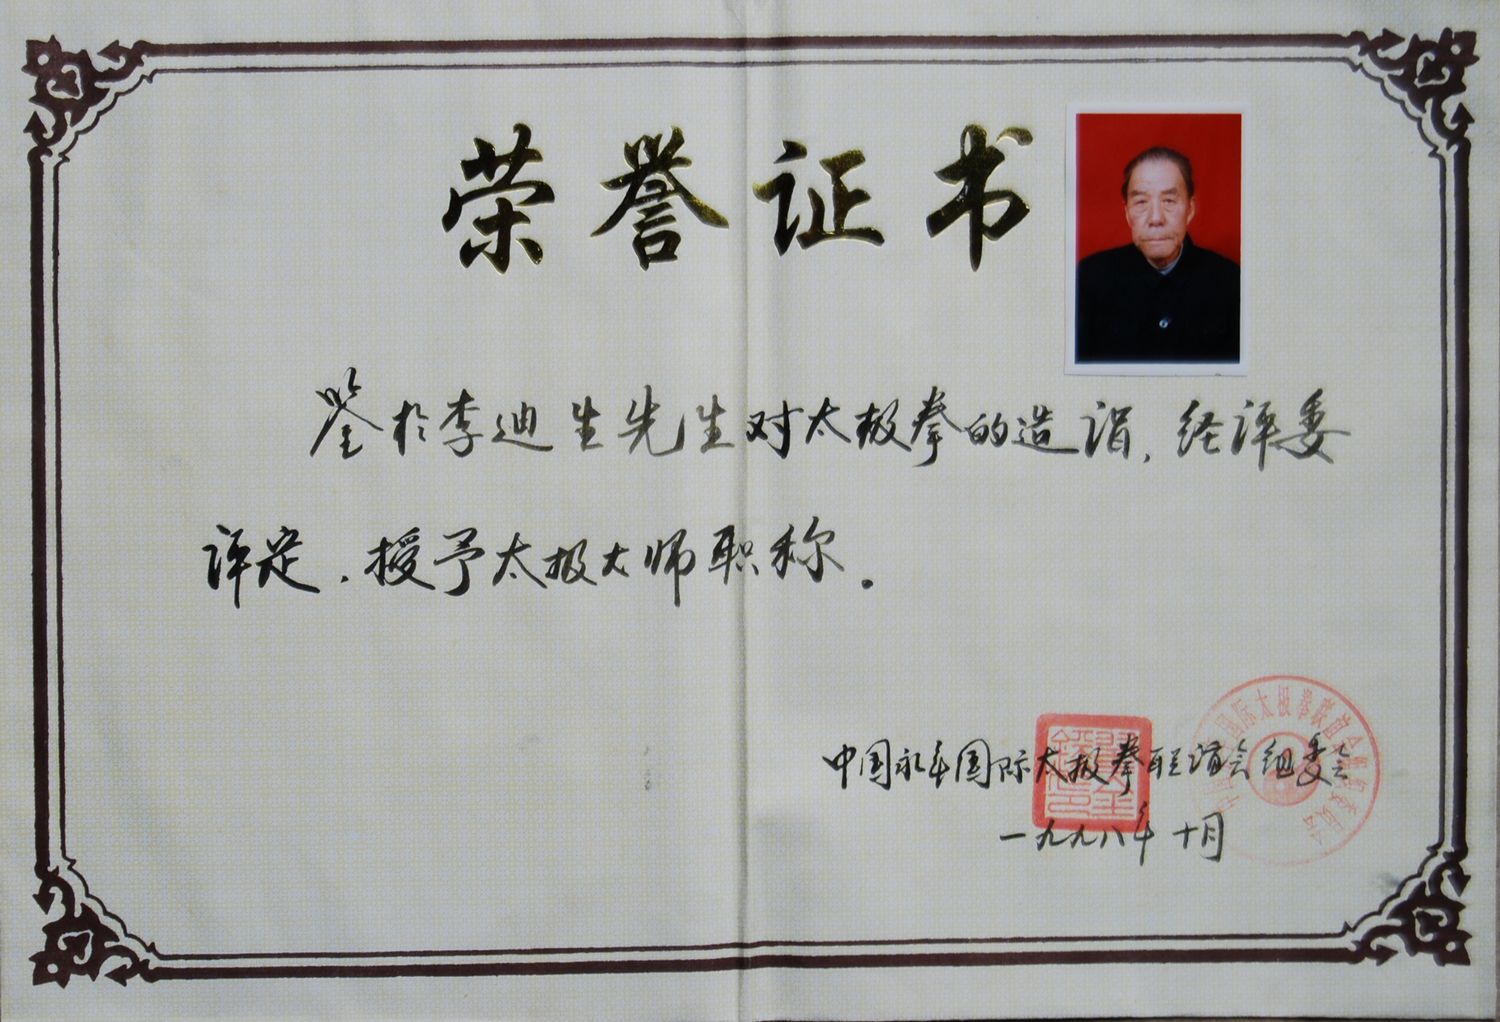 荣誉证书
鉴于李迪生先生对太极拳的造诣，经评委
评定，授予太极大师职称。
中国永年国际太极拳联谊会组委会
一九九八年十月